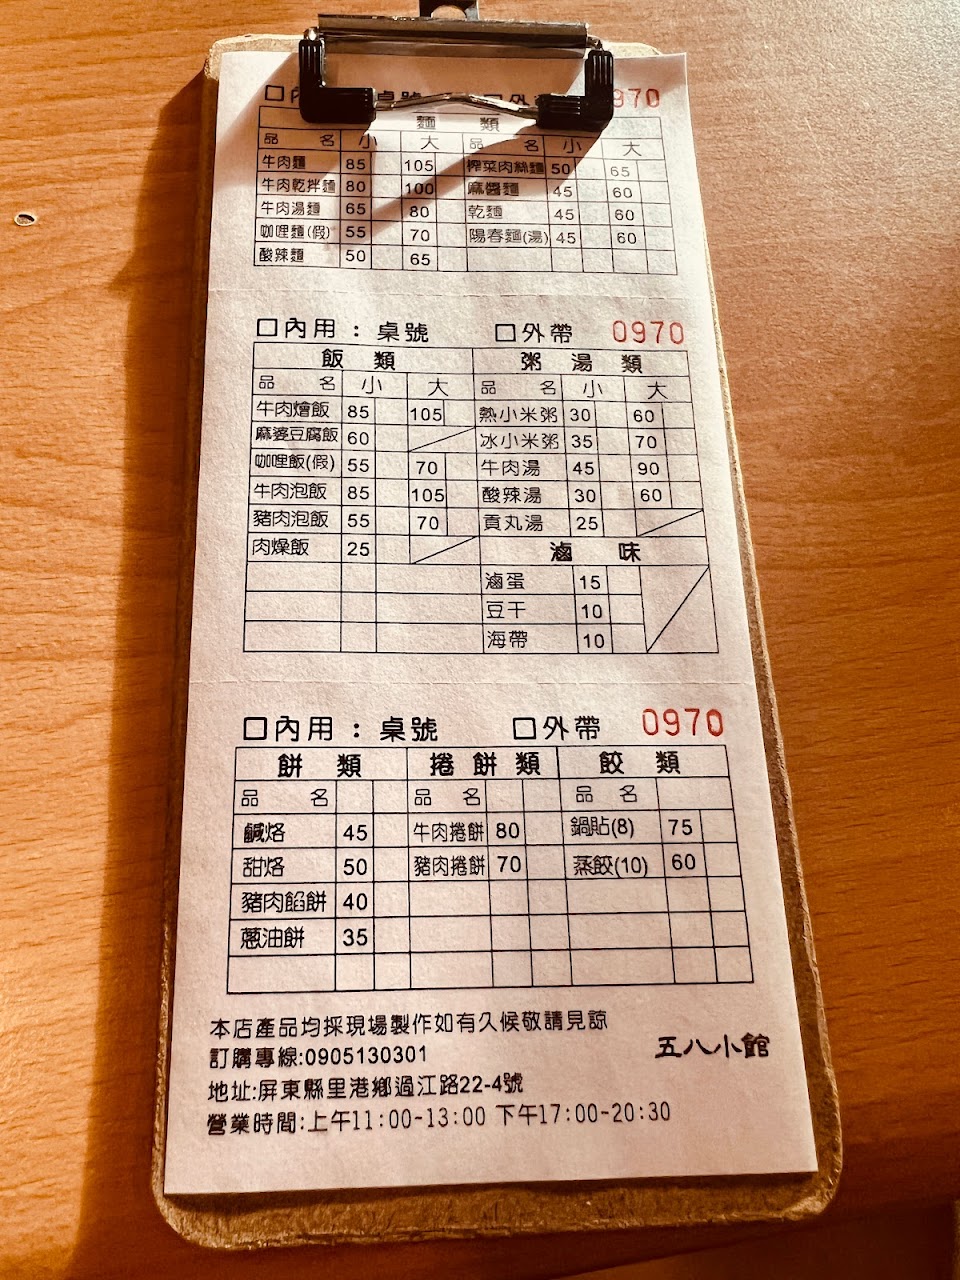 麵 類
品 名 小 大 品 名 小 大
牛肉麵 85 105 榨菜肉絲麵 50 65
牛肉乾拌麵 80 100 麻醬麵 45 60
牛肉湯麵 65 80 乾麵 45 60
咖哩麵(假) 55 70 陽春麵(湯) 45 60
酸辣麵 50 65
□內用：桌號 □外帶 0970
飯 類 粥 湯 類
品 名 小 大 品 名 小 大
牛肉燴飯 85 105 熱小米粥 30 60
麻婆豆腐飯 60 冰小米粥 35 70
咖哩飯(假) 55 70 牛肉湯 45 90
牛肉泡飯 85 105 酸辣湯 30 60
豬肉泡飯 55 70 貢丸湯 25
肉燥飯 25 滷 味
滷蛋 15
豆干 10
海帶 10
□內用：桌號 □外帶 0970
餅 類 捲 餅 類 餃 類
品 名 品 名 品 名
鹹烙 45 牛肉捲餅 80 鍋貼(8) 75
甜烙 50 豬肉捲餅 70 蒸餃(10) 60
豬肉餡餅 40
蔥油餅 35
本店產品均採現場製作如有久候敬請見諒
訂購專線:0905130301 五八小館
地址:屏東縣里港鄉過江路22-4號
營業時間:上午11:00-13:00 下午17:00-20:30